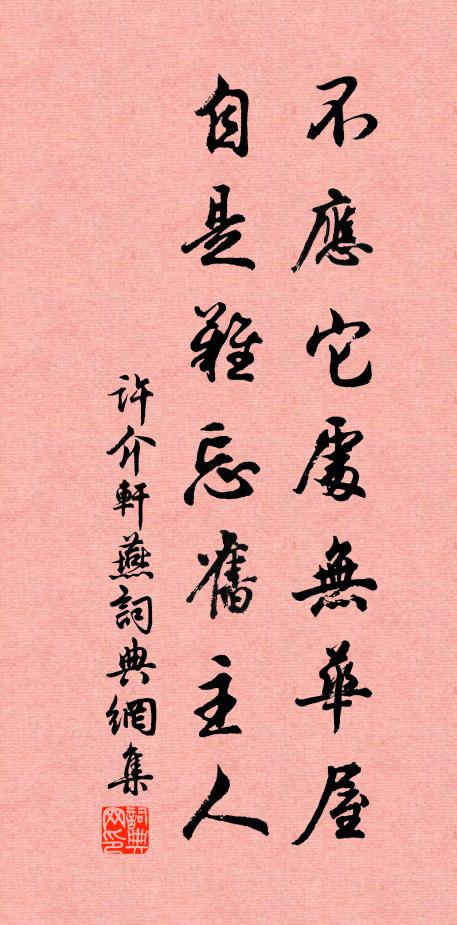 不應它處無華屋
自是難忘舊主人
許介軒燕詞典網集
詞典网印